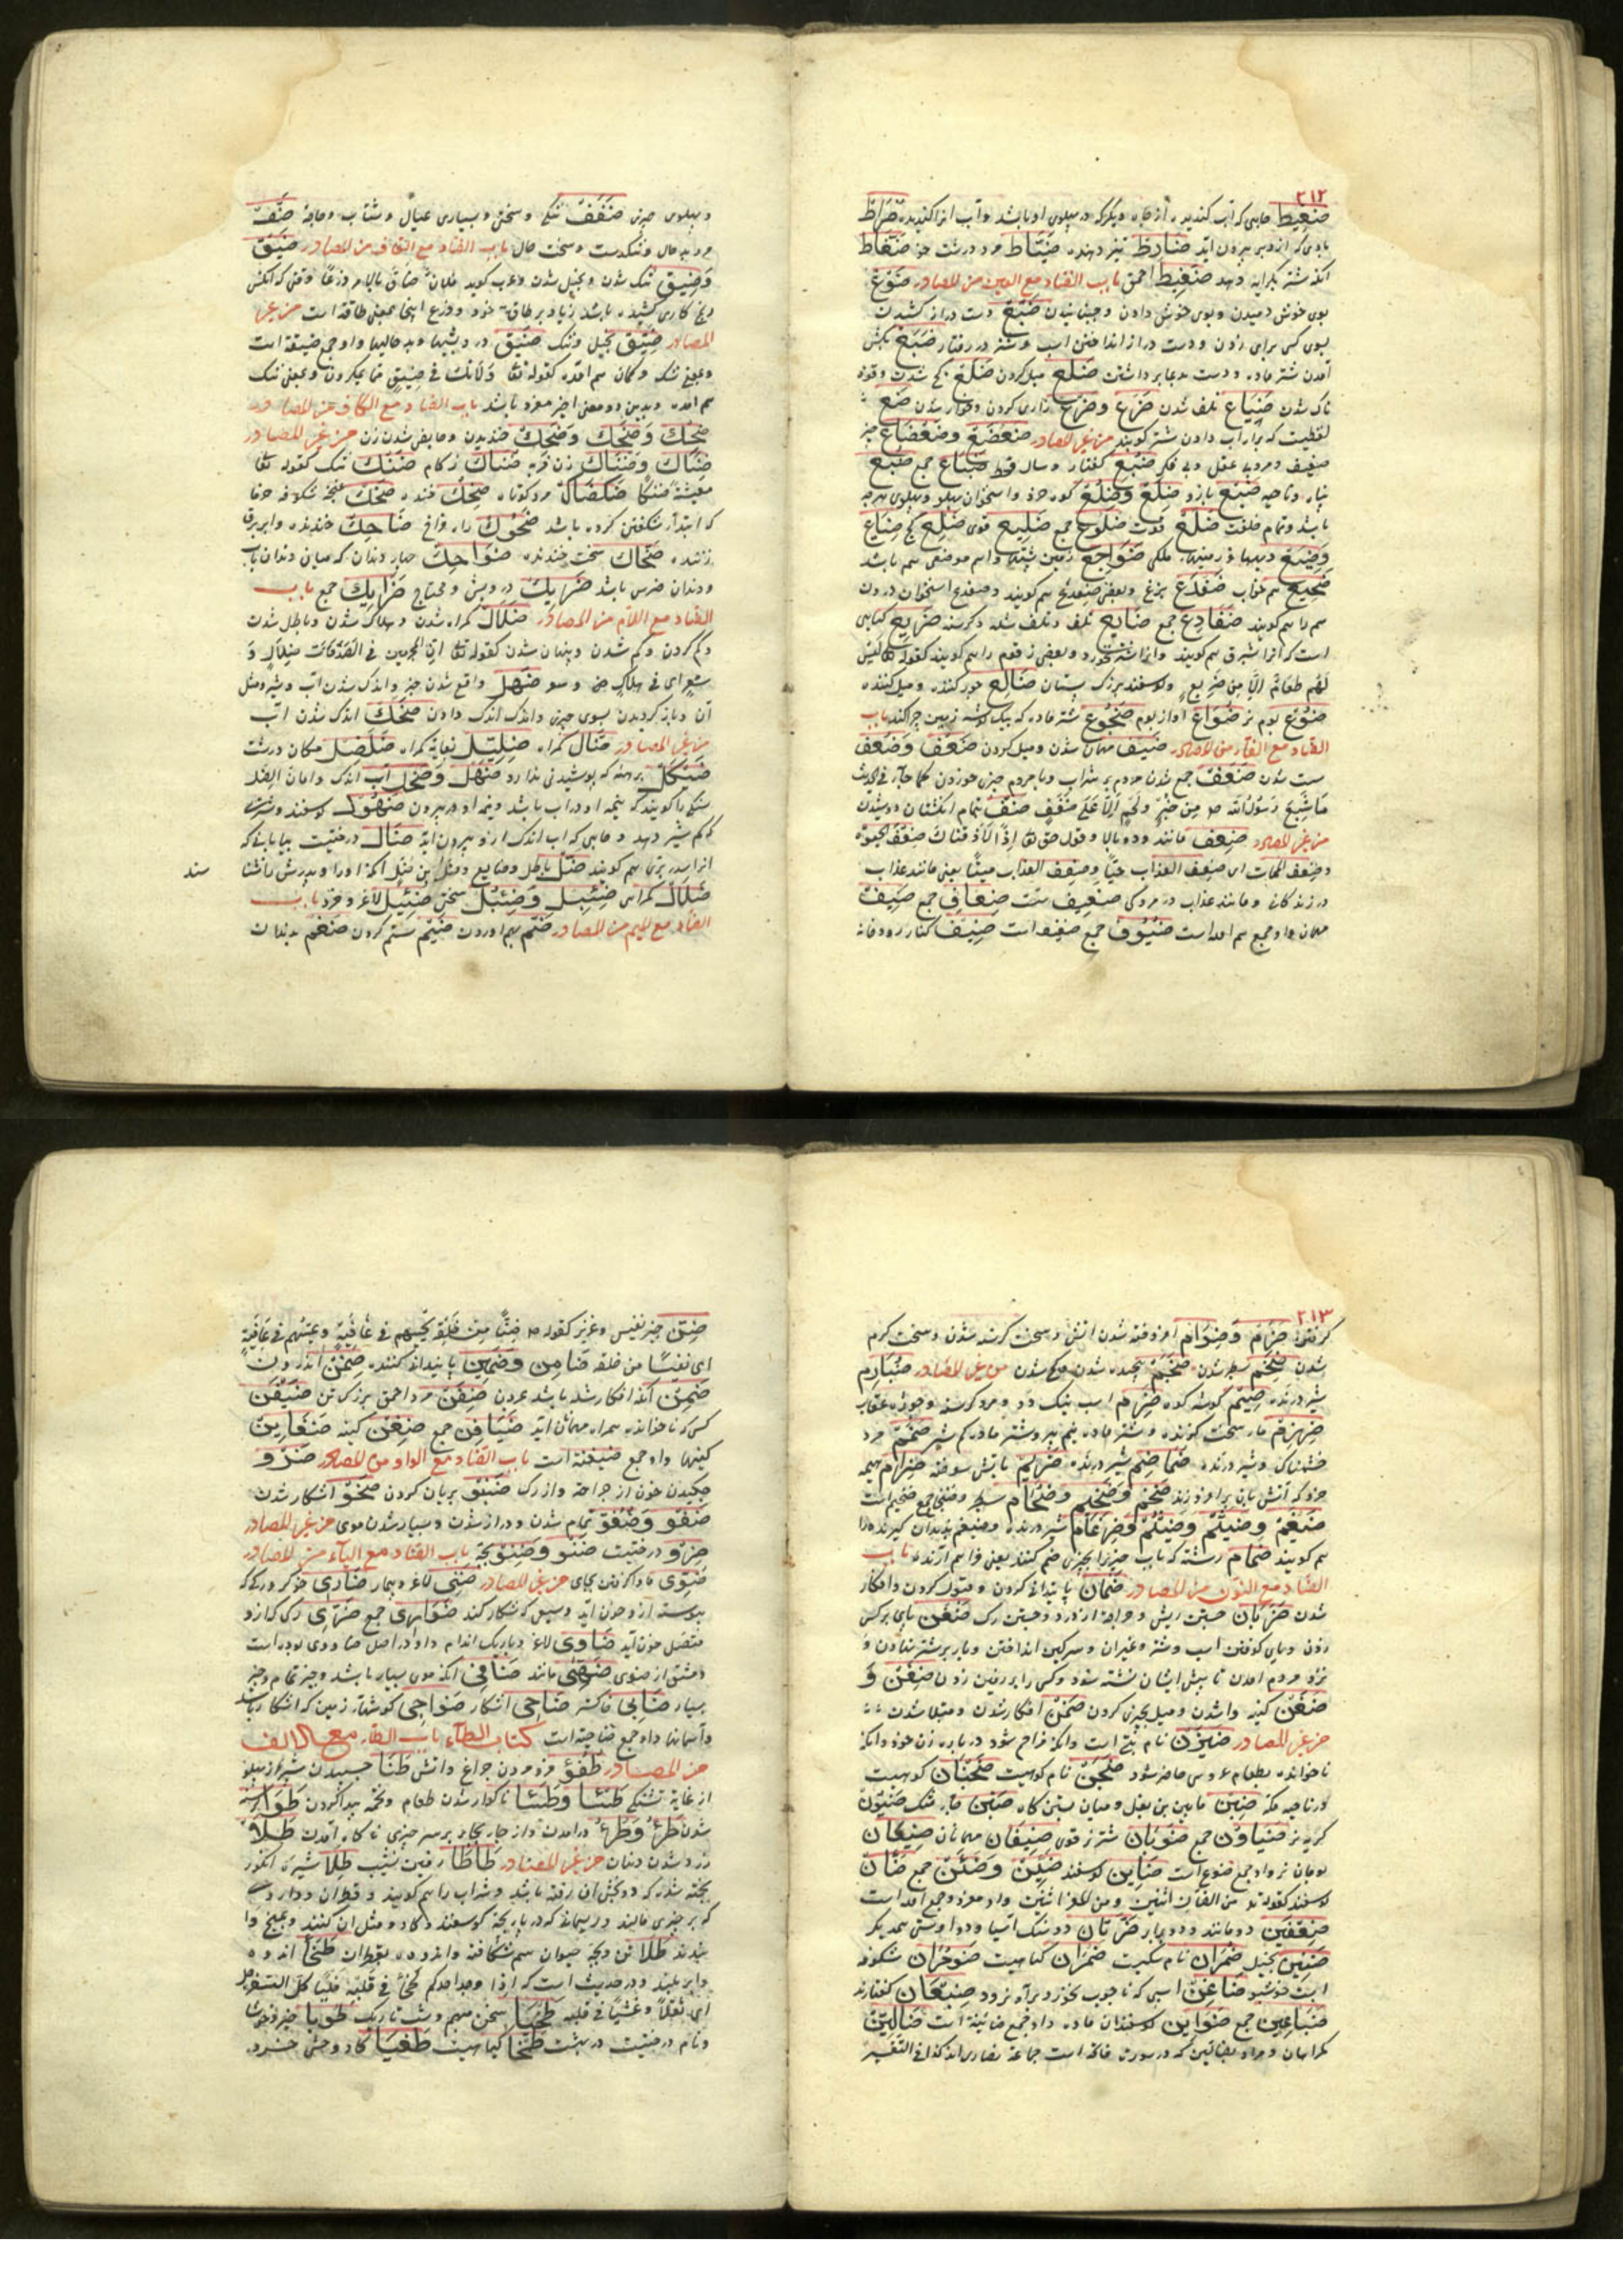 ۲۱۲
ضغیط چاهی که آب کندیده از چاه دیگر که در پهلوی او باشد و آب انرا کندیده ضراط
بادی که از دبر بیرون آید ضارط تیز دهنده ضیاط مرد درشت ضفاط
انکه شتر بکرایه دهد ضغیط احمق باب الضاد مع العین من المصادر ضوع
بوی خوش دمیدن و بوی خوش دادن و جنبانیدن ضبع دست دراز کشیدن
بسوی کسی برای زدن و دست دراز انداختن اسب و شتر در رفتار ضبع بکش
آمدن شتر ماده و دست بدعا برداشتن ضلع میل کردن ضلع کج شدن و قوة
ناک شدن ضیاع تلف شدن ضرع وضرع زاری کردن و خوار شدن ضع
لفظیست که برای آب دادن شتر کویند من غیر المصادر ضعضع وضعضاع چیز
ضعیف و مرد بی عقل و بی فکر ضبع کفتار و سال قحط ضباع جمع ضبع
پناه و ناحیه ضبع بازو ضلع وضلع کوه خرد و استخوان پهلو و پهلوی هر چه
باشد و تمام خلقت ضلع قوت ضلوع جمع ضلیع قوی ضلع کج ضیاع
وضیع دیهها و زمینهای ملکی ضواجع زمین پشتها و اسم موضعی هم باشد
ضجیع هم خواب ضفدع بزغ و بعضی ضفدع هم کویند و ضفدع استخوان درون
سم را هم کویند ضفادع جمع ضایع تلف و تلف شده و کرسنه ضریع کیاهی
است که انرا شبرق هم کویند و انرا شتر نخورد و بعضی زقوم را هم کویند کقوله تعالی لیس
لهم طعام الا من ضریع و کوسفند بزرک پستان ضالع جور کننده و میل کننده
ضوع بوم نر ضواع اواز بوم ضجوع شتر ماده که بیک کوشه زمین چرا کند باب
الضاد مع الفاء من المصادر ضیف مهمان شدن و میل کردن ضعف وضعف
سست شدن ضفف جمع شدن مردم بر شراب و با مردم چیزی خوردن کما جاء فی الحدیث
ما شبع رسول الله ص من خبز ولحم الا علی ضفف ضف بتمام انکشتان دوشیدن
من غیر المصادر ضعف مانند و ده بالا و قول حق تعالی اذا لاذقناک ضعف الحیوة
وضعف الممات ای ضعف العذاب حیا وضعف العذاب میتا یعنی مانند عذاب
در زندکانی و مانند عذاب در مردکی ضعیف سست ضعاف جمع ضیف
مهمان و او جمع هم امده است ضیوف جمع ضیف است ضیف کنار رودخانه
و پهلوی چیزی ضفف تنکی و سختی و بسیاری عیال و شتاب و حاجة ضف
مرد بد حال و تنکدست و سخت حال باب الضاد مع القاف من المصادر ضیق
وضیق تنک شدن و بخیل شدن و عرب کوید فلان ضاق بالامر ذرعا وقتی که انکس
رنج کاری کشیده باشد زیاد بر طاقت خود و ذرع اینجا بمعنی طاقة است من غیر
المصادر ضیق بخیل و تنک ضیق درویشیها و بد حالیها و او جمع ضیقة است
و بمعنی شک و کمان هم امده کقوله تعالی ولا تک فی ضیق مما یمکرون و بمعنی تنک
هم امده و بدین دو معنی اخیر مفرد باشد باب الضاد مع الکاف من المصادر
ضحک وضحک وضحک خندیدن و حایض شدن زن من غیر المصادر
ضناک وضناک زن فربه ضناک زکام ضنک تنک کقوله تعالی
معیشة ضنکا ضکضاک مرد کوتاه ضحک خنده ضحک غنچه شکوفه خرما
که ابتدا شکفتن کرده باشد ضحوک راه فراخ ضاحک خندنده و ابر برق
زننده ضحاک سخت خندنده ضواحک چهار دندان که میان دندان ناب
و دندان ضرس باشد ضریک درویش و محتاج ضرایک جمع باب
الضاد مع اللام من المصادر ضلال کمراه شدن و هلاک شدن و باطل شدن
و کم کردن و کم شدن و پنهان شدن کقوله تعالی ان المجرمین فی ضلال و
سعر ای فی هلاک ضهل واقع شدن چیز و اندک شدن آب و شیر و مثل
آن و باز کردیدن بسوی چیزی و اندک اندک دادن ضحل اندک شدن آب
من غیر المصادر ضال کمراه ضلیل بغایة کمراه ضلضل مکان درشت
ضیکل برهنه که پوشیدنی ندارد ضهل وضحل آب اندک و اتان الضحل
سنکی را کویند که نیمه او در آب باشد و نیمه او در بیرون ضهول کوسفند و شتری
که کم شیر دهد و چاهی که آب اندک ازو بیرون اید ضال درختیست بیابانی که
انرا سدر بری هم کویند ضل باطل و ضایع و ضل بن ضل انکه او را و پدرش را نشنا
سند
ضلال کمراهی ضئبل وضئبل سخن ضئیل لاغر و خرد باب
الضاد مع المیم من المصادر ضم بهم اوردن ضیم ستم کردن ضغم بدندان
۲۱۳
کرفتن ضرام وضرام افروخته شدن اتش و سخت کرسنه شدن و سخت کرم
شدن ضخم سطبر شدن ضجم پیچیده شدن و کج شدن من غیر المصادر ضبارم
شیر درنده ضیم کوشه کوه ضرم اسب نیک دو و مرد کرسنه و جوژه عقاب
ضرزم مار سخت کزنده و شتر ماده نیم پیر و شتر ماده کم شیر ضمضم مرد
خشمناک و شیر درنده ضماضم شیر درنده ضریم باتش سوخته ضرام هیمه
خرد که آتش باو برافروزند ضخم وضخیم وضخام سطبر و ضخام جمع ضخیم است
ضیغم وضیثم وضرغام شیر درنده و ضیغم بدندان کیرنده را
هم کویند ضمام رشته که باو چیزی را بچیزی ضم کنند یعنی فراهم آرنده باب
الضاد مع النون من المصادر ضمان پایندانی کردن و قبول کردن و افکار
شدن ضربان جستن ریش و جراحة از درد و جستن رک ضفن پای بر کس
زدن و پای کوفتن اسب و شتر و غیران و سرکین انداختن و بار بر شتر نهادن و
نزد مردم امدن تا پیش ایشان نشسته شود و کسی را بر زمین زدن ضغن و
ضغن کینه داشتن و میل بچیزی کردن ضمن افکار شدن و مبتلا شدن
من غیر المصادر ضیزن نام بتی است و انکه مزاحم شود در باره زن خود و انکه
ناخوانده بطعام عروسی حاضر شود ضجن نام کوهیست ضجنان کوهیست
در ناحیه مکه ضبن مابین بن بغل و میان بستن کاه ضبن جای تنک ضیون
کربه نر ضیاون جمع ضوبان شتر نر قوی ضیفان مهمانان ضیعان
بومان نر و او جمع ضوع است ضاین کوسفند ضئین وضئین جمع ضان
کوسفند کقوله تع من الضان اثنین ومن المعز اثنین و او مفرد و جمع امده است
ضعفین دو مانند و دو بار ضرتان دو سنک آسیا و دو زن همدیکر
ضنین بخیل ضمران نام سکیست ضمران کیاهیست ضومران شکوفه
است خوشبو ضاغن اسبی که تا چوب نخورد براه نرود ضبعان کفتار نر
ضباعین جمع ضوائن کوسفندان ماده و او جمع ضائنة است ضالین
کمراهان و مراد بضالین که در سورة فاتحه است جماعة نصاری اند کذا فی التفسیر
ضن چیز نفیس و عزیز کقوله ص ضنا من خلقه یحییهم فی عافیة ویمیتهم فی عافیة
ای نفیسا من خلقه ضامن وضمین پایندانی کننده ضمن اندرون
ضمن آنکه افکار شده باشد بدرون ضفن مرد احمق بزرک تن ضیفن
کسی که ناخوانده همراه مهمان اید ضیافن جمع ضغن کینه ضغاین
کینها و او جمع ضغینة است باب الضاد مع الواو من المصادر ضرو
چکیدن خون از جراحة و از رک ضبو بریان کردن ضحو اشکار شدن
ضفو وضفو تمام شدن و دراز شدن و بسیار شدن موی من غیر المصادر
ضرو درختیست ضنو وضنو بچه باب الضاد مع الیاء من المصادر
ضوی ماوا کرفتن بجای من غیر المصادر ضنی لاغر و بیمار ضاری خوکر و رکی که
پیوسته ازو خون اید و سک که شکار کند ضواری جمع ضری رکی که ازو
متصل خون آید ضاوی لاغر و باریک اندام و او در اصل ضاووی بوده است
و مشتق از ضوی ضهی مانند ضافی انکه موی بسیار باشد و چیز تمام و چیز
بسیار ضابی خاکستر ضاحی اشکار ضواحی کوشهای زمین که اشکار باشد
و آسمانها و او جمع ضاحیة است کتاب الطاء باب الطاء مع الالف
من المصادر طفؤ فرو مردن چراغ و اتش طنا چسبیدن شش از پهلو
از غایة تشنکی طسا وطسا ناکوار شدن طعام و تخمه پیدا کردن طوا کرسنه
شدن طرء وطرء درامدن و از جای بجای بر سر چیزی ناکاه آمدن طلا
زرد شدن دندان من غیر المصادر طاطا زمین نشیب طلا شیره انکور
پخته شده که دو بخش ان رفته باشد و شراب را هم کویند و قطران و داروی
که بر چیزی مالند و ریسمانی که در پای بچه کوسفند و کاو و مثل ان کنند و بمیخ وا
بندند طلا تن و بچه حیوان سم شکافته و انرو ده بقطران طخا اندوه
و ابر بلند و در حدیث است که اذا وجد احدکم طخا فی قلبه فلیاکل السفرجل
ای ثقلا وغشیا فی قلبه طخیا سخن مبهم و شب تاریک طوبا چیز خوش
و نام درختیست در بهشت طخا کیاهیست طغیا کاو وحشی خرد